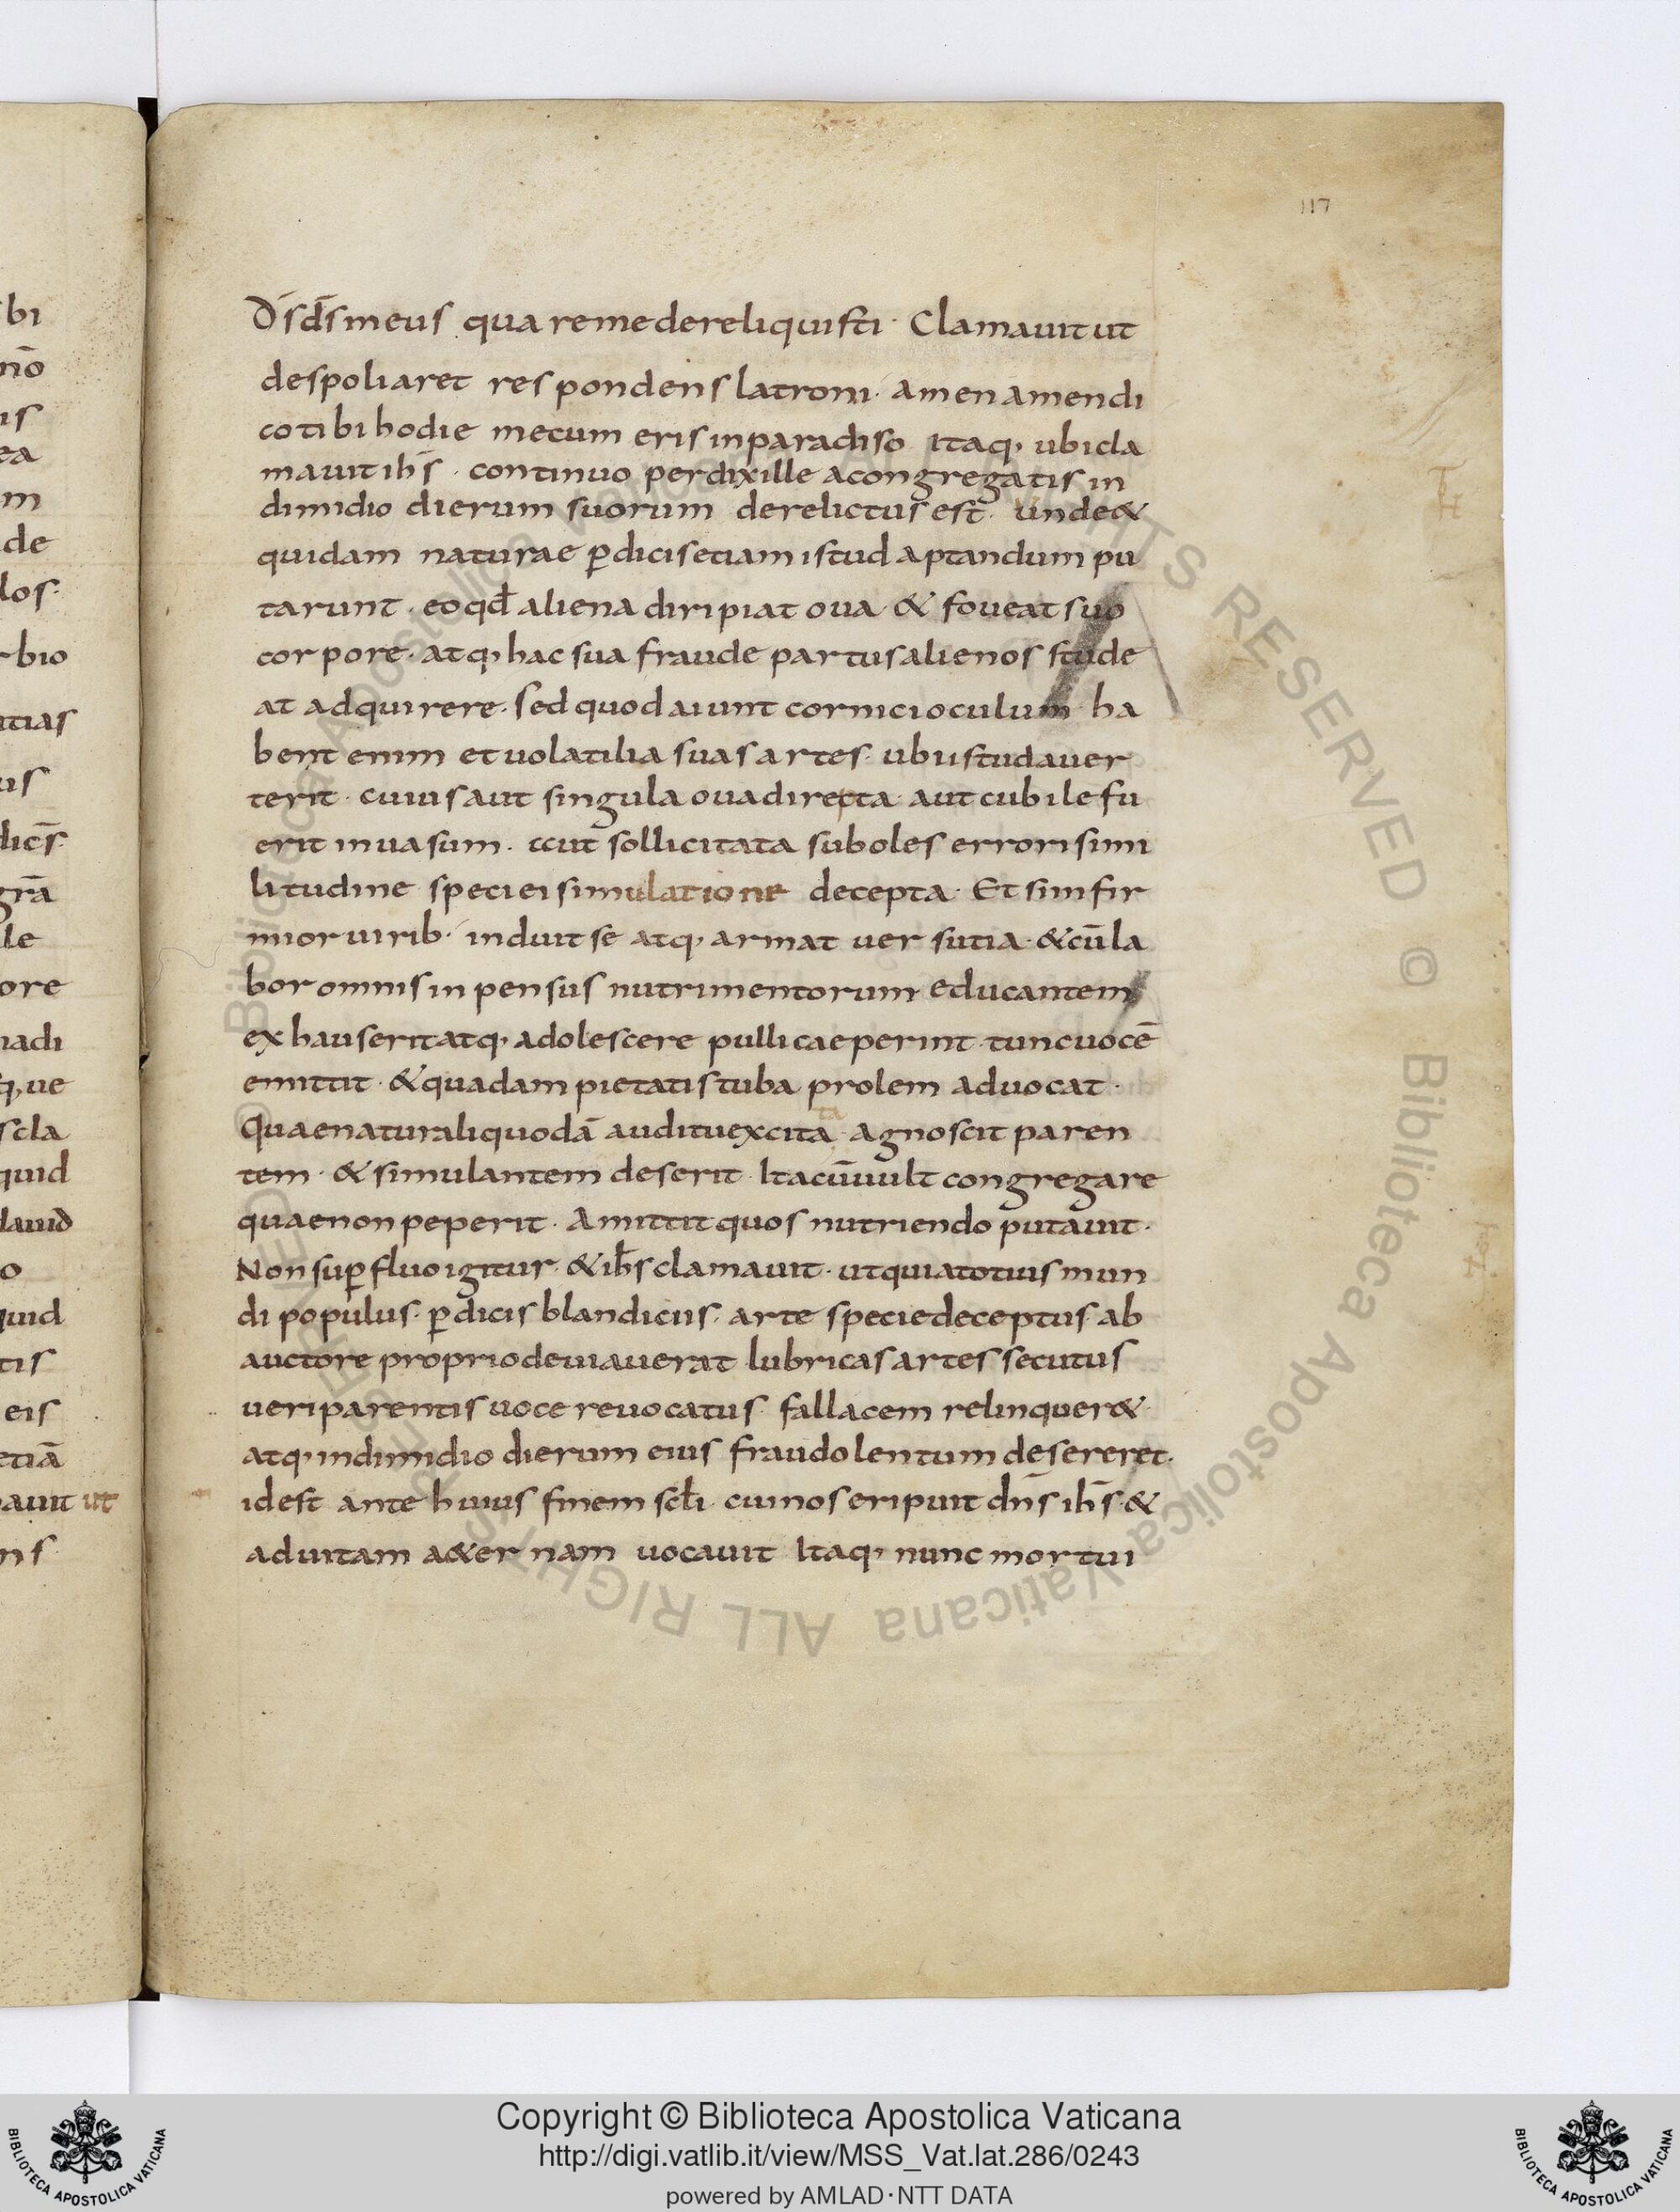 117
D̄s d̄s meus quare me dereliquisti · Clamauit ut
despoliaret respondens latroni · Amen amen di
co tibi hodie mecum eris in paradiso Itaq, ubi cla
mauit ih̄s · continuo perdix ille a congregatis in
dimidio dierum suorum derelictus est · Unde &
quidam naturae p̄dicis etiam istud aptandum pu
tarunt · eo qd̄ aliena diripiat oua · & foueat suo
corpore · atq, hac sua fraude partus alienos stude
at adquirere · sed quod aiunt cornici oculum · ha
bent enim et uolatilia suas artes · ubi istud auer
terit · cuius aut singula oua direpta · aut cubile fu
erit inuasum · sollicitata suboles errori simi
litudine speciei simulatione decepta · Et sim fir
mior uirib · induit se atq, armat uersutia · & cū la
bor omnis inpensus nutrimentorum educantem
exhauserit atq, adolescere pulli caeperint tunc uocē
emittit · & quadam pietatis tuba prolem aduocat ·
Quae naturali quodā auditu excita ta agnoscit paren
tem · & simulantem deserit · Ita cū uult congregare
quae non peperit · Amittit quos nutriendo putauit ·
Non sup̄fluo igitur · & ih̄s clamauit · ut quia totius mun
di populus · p̄dicis blandiciis · arte specie deceptus · ab
auctore proprio deuiauerat lubricas artes secutus
ueri parentis uoce reuocatus · fallacem relinquer&
atq, in dimidio dierum eius fraudolentum desereret ·
id est ante huius finem scłi · cui nos eripuit dn̄s ih̄s · &
ad uitam a&ernam uocauit Itaq, nunc mortui
bi
nō
is
ea
m
de
los ·
rbio
tias
us
dicīs
grā
le
ore
nadi
q, ue
scla
quid
lauid
o
quid
tis
eis
etiā
auit ut
ns
© Biblioteca Apostolica Vaticana ALL RIGHTS RESERVED © Biblioteca Apostolica Vaticana ALL RIGHTS RESERVED
Copyright © Biblioteca Apostolica Vaticana
http://digi.vatlib.it/view/MSS_Vat.lat.286/0243
powered by AMLAD · NTT DATA
BIBLIOTECA APOSTOLICA VATICANA
BIBLIOTECA APOSTOLICA VATICANA